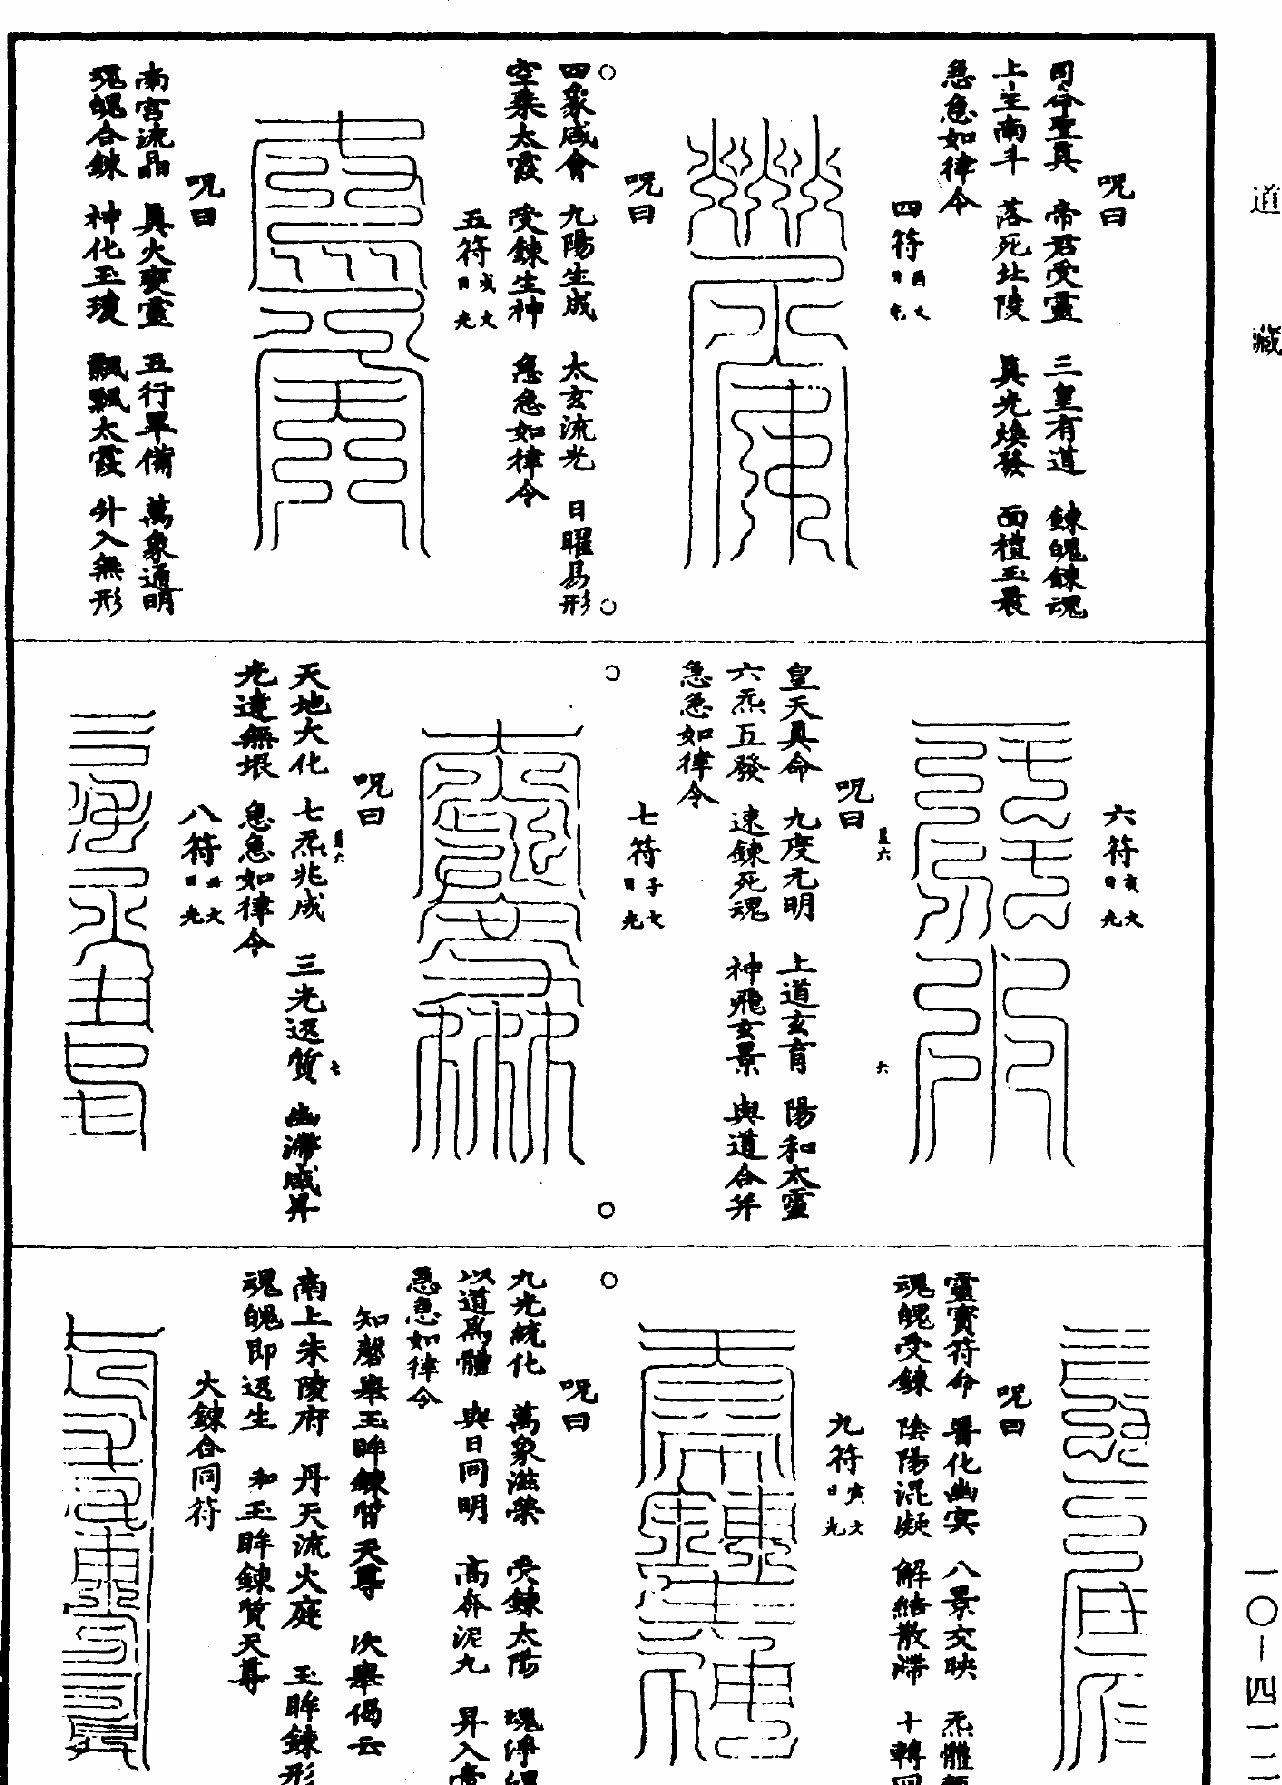 道藏
一〇—四一二
呪曰
司命聖真　帝君受靈　三皇有道　鍊魄鍊魂
上生南斗　落死北陵　真光煥發　面禮玉晨
急急如律令
四符
呪曰
四炁咸會　九陽生成　太玄流光　日曜易形
空乘太霞　受鍊生神　急急如律令
五符
呪曰
南宮流晶　真火變靈　五行畢備　萬象通明
魂魄合鍊　神化玉瓊　飄飄太霞　升入無形
六符
呪曰
皇天真命　九度元明　上道玄育　陽和太靈
六炁互發　速鍊死魂　神飛玄景　與道合并
急急如律令
七符
呪曰
天地大化　七炁兆成　三光返質　幽滯咸昇
光達無垠　急急如律令
八符
呪曰
靈寶符命　普化幽冥　八景交映　炁體
魂魄受鍊　陰陽混凝　解結散滯　十轉
九符
呪曰
九光統化　萬象滋榮　受鍊太陽　魂淨
以道為體　與日同明　高奔泥丸　昇入
急急如律令
知磬舉玉眸鍊質天尊　次舉偈云
南上朱陵府　丹天流火庭　玉眸鍊形
魂魄即返生　和玉眸鍊質天尊
大鍊合同符